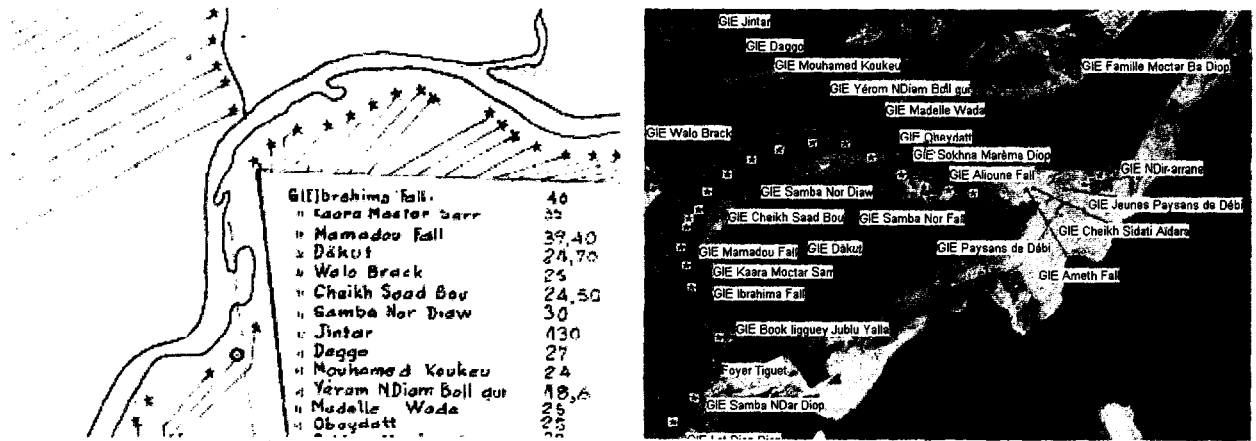 GIE Ibrahima Fall. 40
" Kaara Moctar Sarr 35
" Mamadou Fall 39,40
" Dākut 24,70
" Walo Brack 25
" Cheikh Saad Bou 24,50
" Samba Nor Diaw 30
" Jintar 130
" Daggo 27
" Mouhamed Koukeu 24
" Yéram NDiam Ball gur 18,6
" Madelle Wade 25
" Obeydatt 25
GIE Jintar
GIE Daggo
GIE Mouhamed Koukeu
GIE Famille Moctar Ba Diop
GIE Yérom NDiam Boll gur
GIE Madelle Wada
GIE Walo Brack
GIE Obeydatt
GIE Sokhna Marème Diop
GIE Alioune Fall
GIE NDir-arrane
GIE Samba Nor Diaw
GIE Jeunes Paysans de Débi
GIE Cheikh Saad Bou
GIE Samba Nor Fall
GIE Cheikh Sidati Aïdara
GIE Mamadou Fall
GIE Dàkut
GIE Paysans de Débi
GIE Kaara Moctar Sarr
GIE Ameth Fall
GIE Ibrahima Fall
GIE Book ligguey Jublu Yalla
Foyer Tiguet
GIE Samba NDar Diop